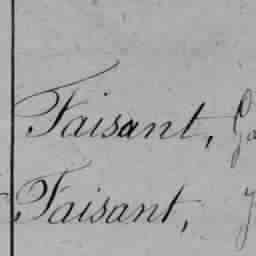 Faisant,
Faisant,